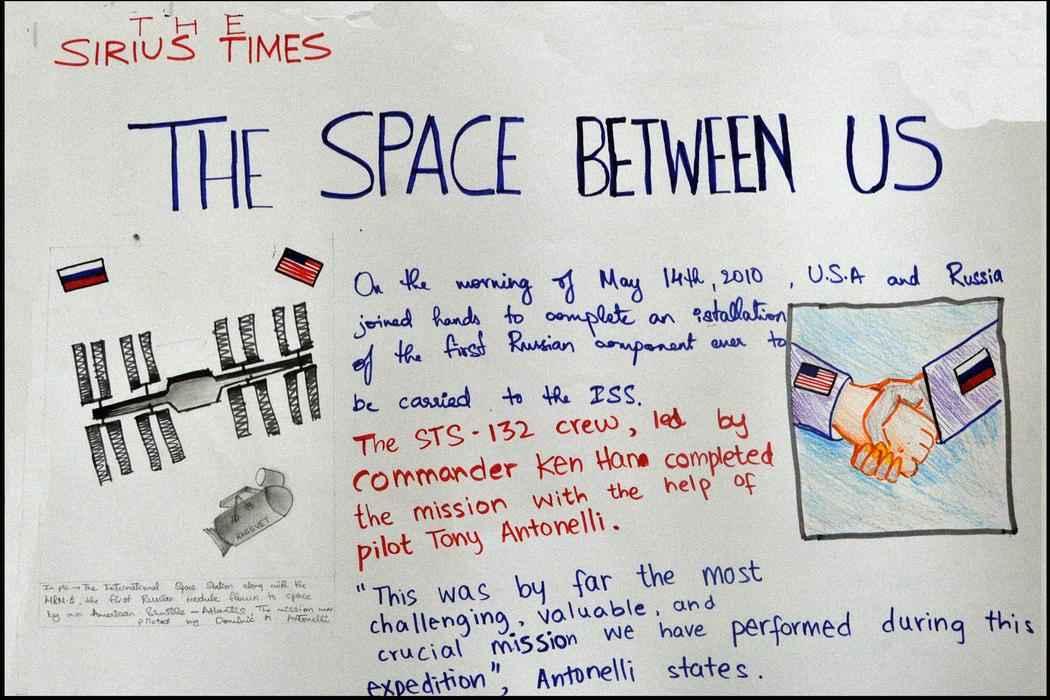 THE
SIRIUS TIMES
THE SPACE BETWEEN US
On the morning of May 14th, 2010 , U.S.A and Russia
joined hands to complete an istallation
of the first Russian component ever to
be carried to the ISS.
The STS-132 crew, led by
commander Ken Ham completed
the mission with the help of
pilot Tony Antonelli.
"This was by far the most
challenging, valuable, and
crucial mission we have performed during this
expedition", Antonelli states.
RASSVET
In pic → The International Space Station along with the
MRM-1, the first Russian module flown to space
by an American Shuttle - Atlantis. The mission was
piloted by Dominic A Antonelli